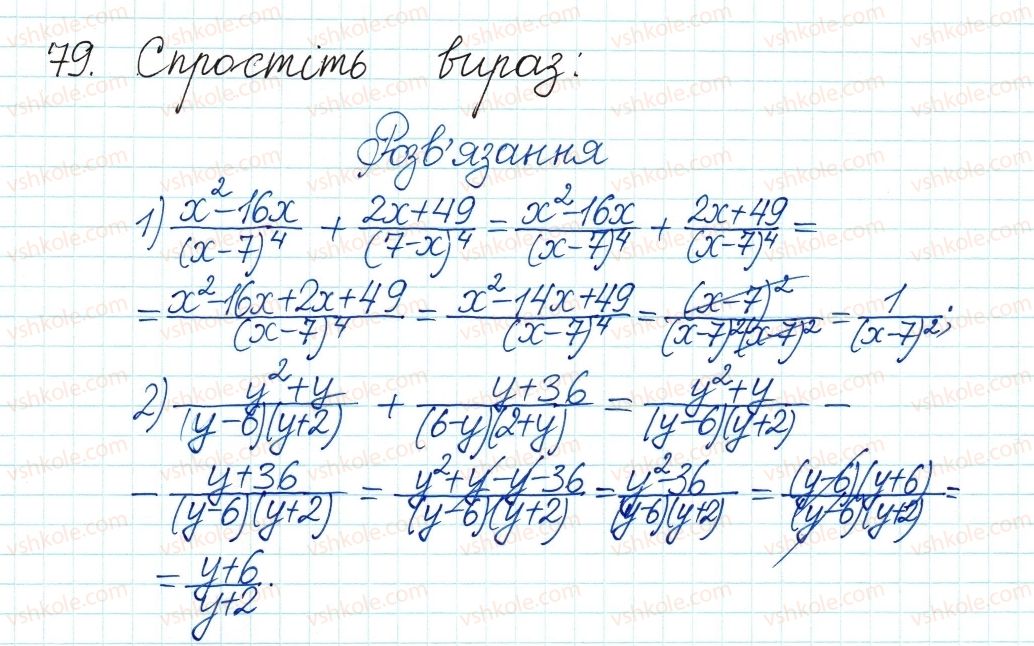 79. Спростіть вираз:
Розв'язання
1) (x²-16x)/(x-7)⁴ + (2x+49)/(7-x)⁴ = (x²-16x)/(x-7)⁴ + (2x+49)/(x-7)⁴ =
= (x²-16x+2x+49)/(x-7)⁴ = (x²-14x+49)/(x-7)⁴ = (x-7)²/((x-7)²(x-7)²) = 1/(x-7)²;
2) (y²+y)/((y-6)(y+2)) + (y+36)/((6-y)(2+y)) = (y²+y)/((y-6)(y+2)) -
- (y+36)/((y-6)(y+2)) = (y²+y-y-36)/((y-6)(y+2)) = (y²-36)/((y-6)(y+2)) = ((y-6)(y+6))/((y-6)(y+2)) =
= (y+6)/(y+2).
vshkole.com